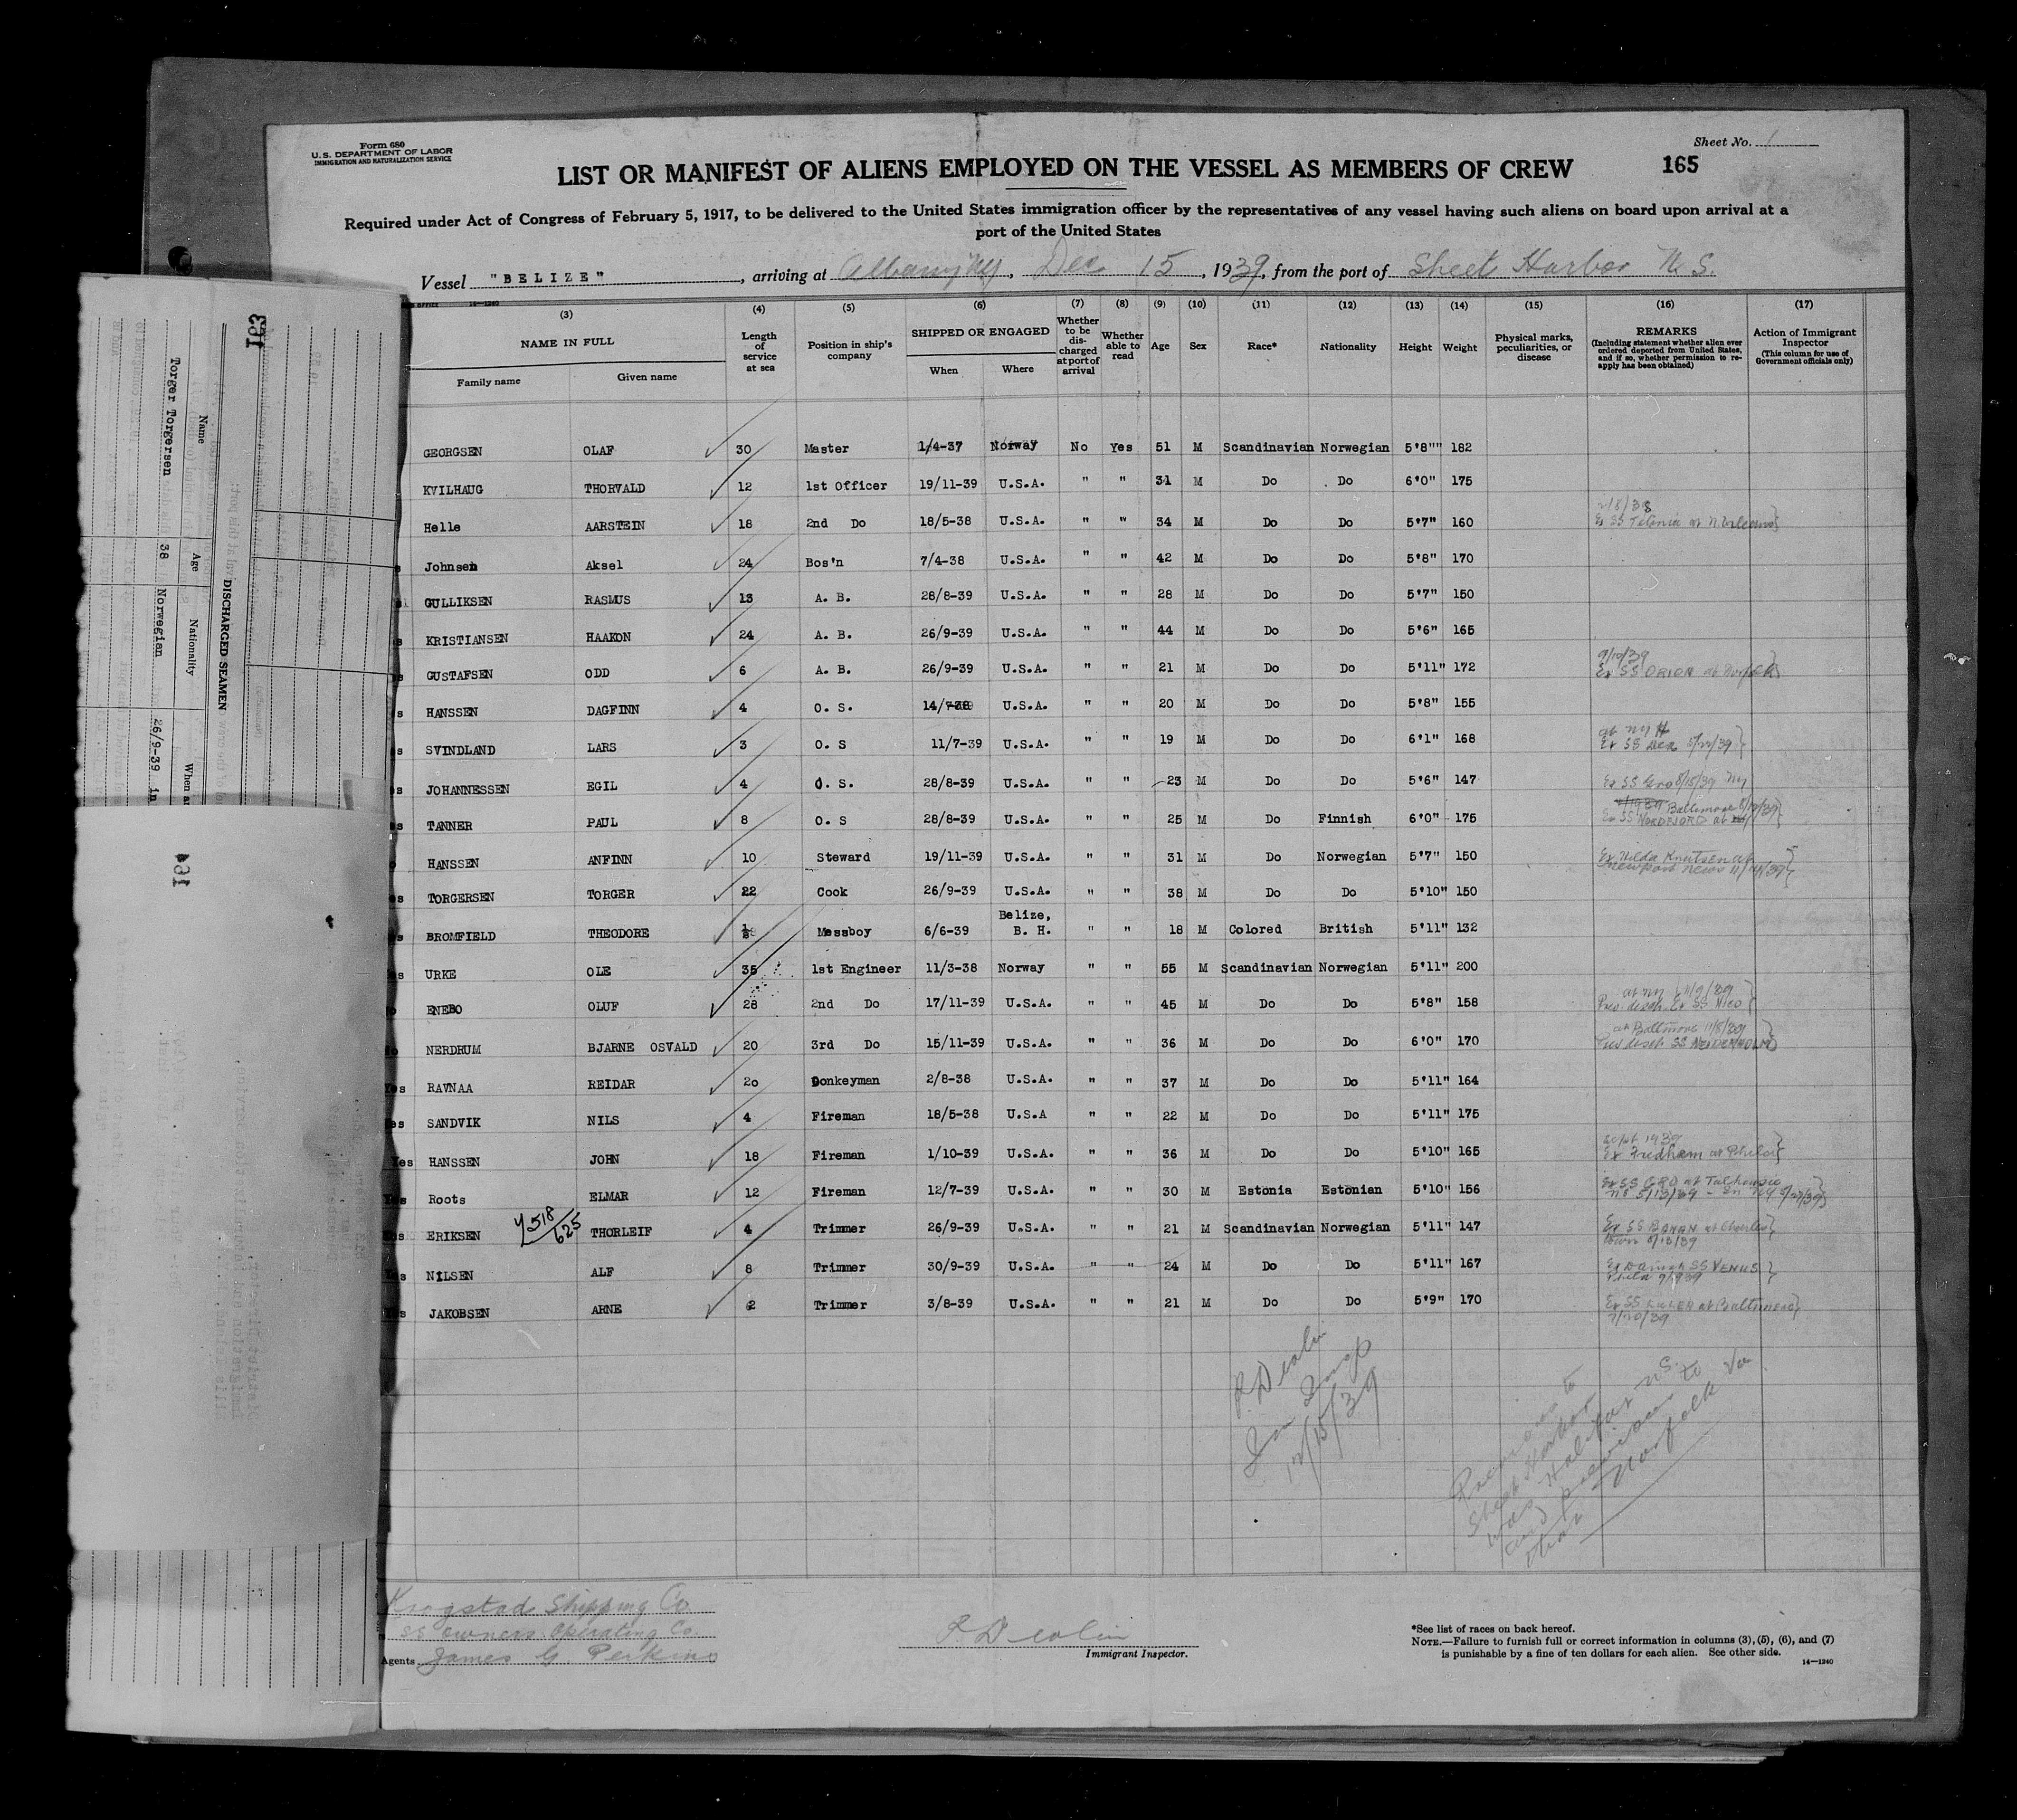 Form 680
U.S. DEPARTMENT OF LABOR
IMMIGRATION AND NATURALIZATION SERVICE
Sheet No. 1
LIST OR MANIFEST OF ALIENS EMPLOYED ON THE VESSEL AS MEMBERS OF CREW
165
Required under Act of Congress of February 5, 1917, to be delivered to the United States immigration officer by the representatives of any vessel having such aliens on board upon arrival at a
port of the United States
Vessel "BELIZE", arriving at Albany NY, Dec 15, 1939, from the port of Sheet Harbor N.S.
(3) (4) (5) (6) (7) (8) (9) (10) (11) (12) (13) (14) (15) (16) (17)
NAME IN FULL
Family name
Given name
Length of service at sea
Position in ship's company
SHIPPED OR ENGAGED
When
Where
Whether to be discharged at port of arrival
Whether able to read
Age
Sex
Race*
Nationality
Height
Weight
Physical marks, peculiarities, or disease
REMARKS
(Including statement whether alien ever ordered deported from United States, and if so, whether permission to reapply has been obtained)
Action of Immigrant Inspector
(This column for use of Government officials only)
GEORGSEN OLAF 30 Master 1/4-37 Norway No Yes 51 M Scandinavian Norwegian 5'8"" 182
KVILHAUG THORVALD 12 1st Officer 19/11-39 U.S.A. " " 31 M Do Do 6'0" 175
Helle AARSTEIN 18 2nd Do 18/5-38 U.S.A. " " 34 M Do Do 5'7" 160 Ex SS Titania at N Orleans
Johnsen Aksel 24 Bos'n 7/4-38 U.S.A. " " 42 M Do Do 5'8" 170
GULLIKSEN RASMUS 13 A. B. 28/8-39 U.S.A. " " 28 M Do Do 5'7" 150
KRISTIANSEN HAAKON 24 A. B. 26/9-39 U.S.A. " " 44 M Do Do 5'6" 165
GUSTAFSEN ODD 6 A. B. 26/9-39 U.S.A. " " 21 M Do Do 5'11" 172 9/10/39 Ex SS ORION at Norfolk
HANSSEN DAGFINN 4 O. S. 14/7-38 U.S.A. " " 20 M Do Do 5'8" 155
SVINDLAND LARS 3 O. S 11/7-39 U.S.A. " " 19 M Do Do 6'1" 168 at NY Ex SS
JOHANNESSEN EGIL 4 O. S. 28/8-39 U.S.A. " " 23 M Do Do 5'6" 147 Ex SS Gro 8/15/39 NY
TANNER PAUL 8 O. S 28/8-39 U.S.A. " " 25 M Do Finnish 6'0" 175 Baltimore Ex SS NORDFJORD at
HANSSEN ANFINN 10 Steward 19/11-39 U.S.A. " " 31 M Do Norwegian 5'7" 150 Ex Hilda Knutsen at Newport News
TORGERSEN TORGER 22 Cook 26/9-39 U.S.A. " " 38 M Do Do 5'10" 150
BROMFIELD THEODORE Messboy 6/6-39 Belize, B. H. " " 18 M Colored British 5'11" 132
URKE OLE 35 1st Engineer 11/3-38 Norway " " 55 M Scandinavian Norwegian 5'11" 200
ENEBO OLUF 28 2nd Do 17/11-39 U.S.A. " " 45 M Do Do 5'8" 158 at NY 11/9/39 Prev disch Ex SS NICO
NERDRUM BJARNE OSVALD 20 3rd Do 15/11-39 U.S.A. " " 36 M Do Do 6'0" 170 at Baltimore 11/8/39 Prev disch SS NEIDENHOLM
Yes RAVNAA REIDAR 20 Donkeyman 2/8-38 U.S.A. " " 37 M Do Do 5'11" 164
SANDVIK NILS 4 Fireman 18/5-38 U.S.A " " 22 M Do Do 5'11" 175
Yes HANSSEN JOHN 18 Fireman 1/10-39 U.S.A. " " 36 M Do Do 5'10" 165 Sept 1939 Ex Fredhem at Phila
Yes Roots ELMAR 12 Fireman 12/7-39 U.S.A. " " 30 M Estonia Estonian 5'10" 156 Ex SS GRO at
ERIKSEN 4518/625 THORLEIF 4 Trimmer 26/9-39 U.S.A. " " 21 M Scandinavian Norwegian 5'11" 147 Ex SS at Charles town
NILSEN ALF 8 Trimmer 30/9-39 U.S.A. " " 24 M Do Do 5'11" 167 Ex Danish SS VENUS Phila
JAKOBSEN ARNE 2 Trimmer 3/8-39 U.S.A. " " 21 M Do Do 5'9" 170 Ex SS at Baltimore 7/20/39
12/15/39
Previous to
Sheet Harbor
was Halifax N.S.
and previous to
that Norfolk Va
Krogstad Shipping Co
SS Owners Operating Co
Agents James G Perkins
Immigrant Inspector.
*See list of races on back hereof.
NOTE.—Failure to furnish full or correct information in columns (3), (5), (6), and (7)
is punishable by a fine of ten dollars for each alien. See other side.
14—1240
163
164
DISCHARGED SEAMEN
Name Age Nationality
Torger Torgersen 38 Norwegian 26/9-39 in